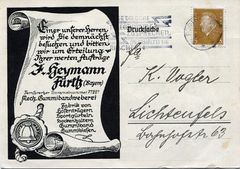 Einer unserer Herren
wird Sie demnächst
besuchen und bitten
wir um Erteilung
Ihrer werten Aufträge
J. Heymann
Fürth
(Bayern)
Mech. Gummibandweberei
Fabrik von
Hosenträgern
Sportgürteln
Sockenhaltern
Gummibändern
Drucksache
K. Vogler
Lichtenfels
Bahnhofstr. 63